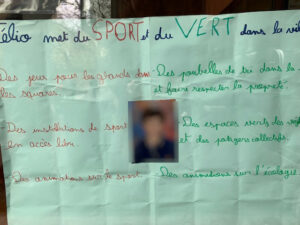 Élico met du SPORT et du VERT dans la vi
Des jeux pour les abords dans
les squares.
Des poubelles de tri dans la
et faire respecter la propreté.
Des installations de sport
en accès libre.
Des espaces verts
et des potagers collectifs.
Des animations sur le sport.
Des animations sur l'écologie